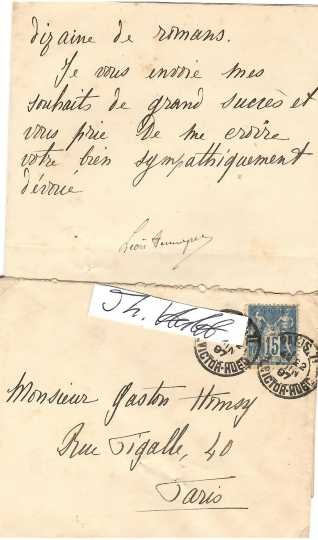 dizaine de romans.
Je vous envoie mes
souhaits de grand succès et
vous prie de me croire
votre bien sympathiquement
dévoué
Léon
Th.
15
VICTOR-HUGO
Monsieur Gaston Homsy
Rue Pigalle, 40
Paris